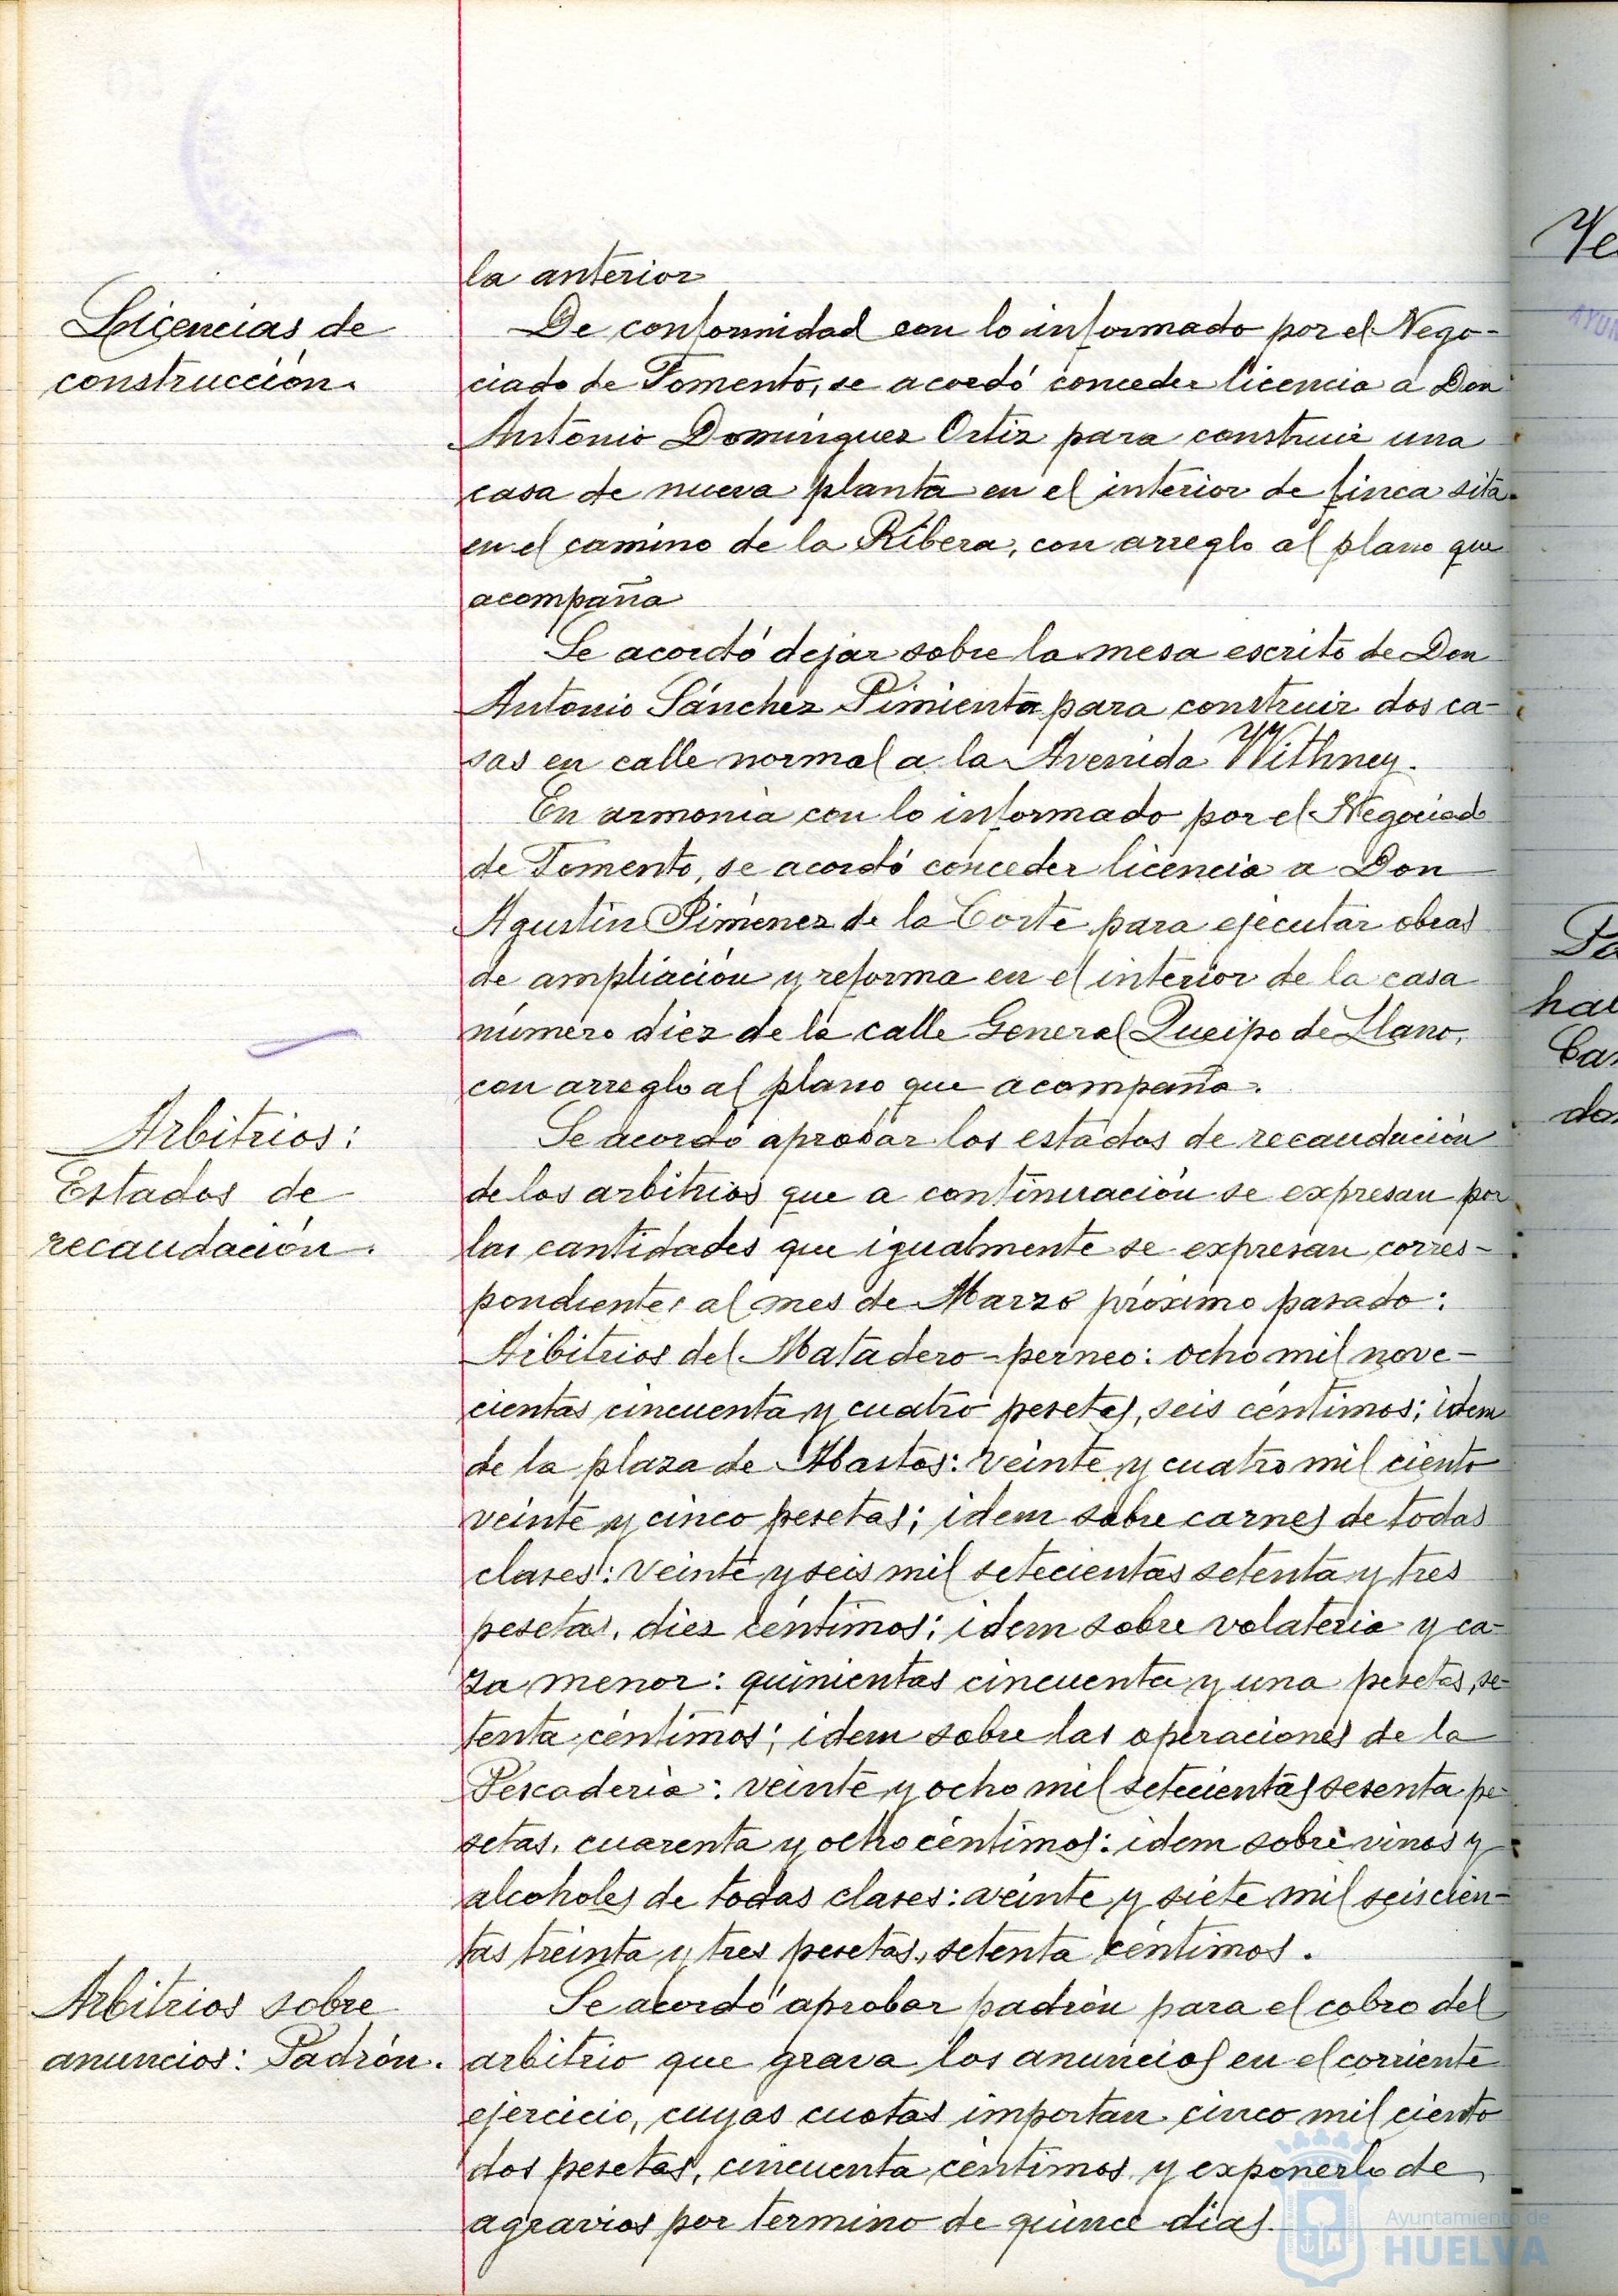 la anterior
Licencias de
construcción.
De conformidad con lo informado por el Nego-
ciado de Fomento, se acordó conceder licencia a Don
Antonio Domínguez Ortiz para construir una
casa de nueva planta en el interior de finca sita
en el camino de la Ribera, con arreglo al plano que
acompaña
Se acordó dejar sobre la mesa escrito de Don
Antonio Sánchez Pimienta para construir dos ca-
sas en calle normal a la Avenida Withney.
En armonia con lo informado por el Negociado
de Fomento, se acordó conceder licencia a Don
Agustín Jiménez de la Corte para ejecutar obras
de ampliación y reforma en el interior de la casa
número diez de la calle General Queipo de Llano,
con arreglo al plano que acompaña.
Arbitrios:
Estados de
recaudación.
Se acordó aprobar los estados de recaudación
de los arbitrios que a continuación se expresan por
las cantidades que igualmente se expresan corres-
pondientes al mes de Marzo próximo pasado:
Arbitrios del Matadero-perneo: ocho mil nove-
cientas cincuenta y cuatro pesetas, seis céntimos; idem
de la plaza de Abastos: veinte y cuatro mil ciento
veinte y cinco pesetas; idem sobre carnes de todas
clases: veinte y seis mil setecientas setenta y tres
pesetas, diez céntimos; idem sobre volateria y ca-
za menor: quinientas cincuenta y una pesetas, se-
tenta céntimos; idem sobre las operaciones de la
Pescaderia: veinte y ocho mil setecientas sesenta pe-
setas, cuarenta y ocho céntimos: idem sobre vinos y
alcoholes de todas clases: veinte y siete mil seiscien-
tas treinta y tres pesetas, setenta céntimos.
Arbitrios sobre
anuncios: Padrón.
Se acordó aprobar padrón para el cobro del
arbitrio que grava los anuncios en el corriente
ejercicio, cuyas cuotas importan cinco mil ciento
dos pesetas, cincuenta céntimos y exponerlo de
agravios por termino de quince dias.
Ayuntamiento de
HUELVA